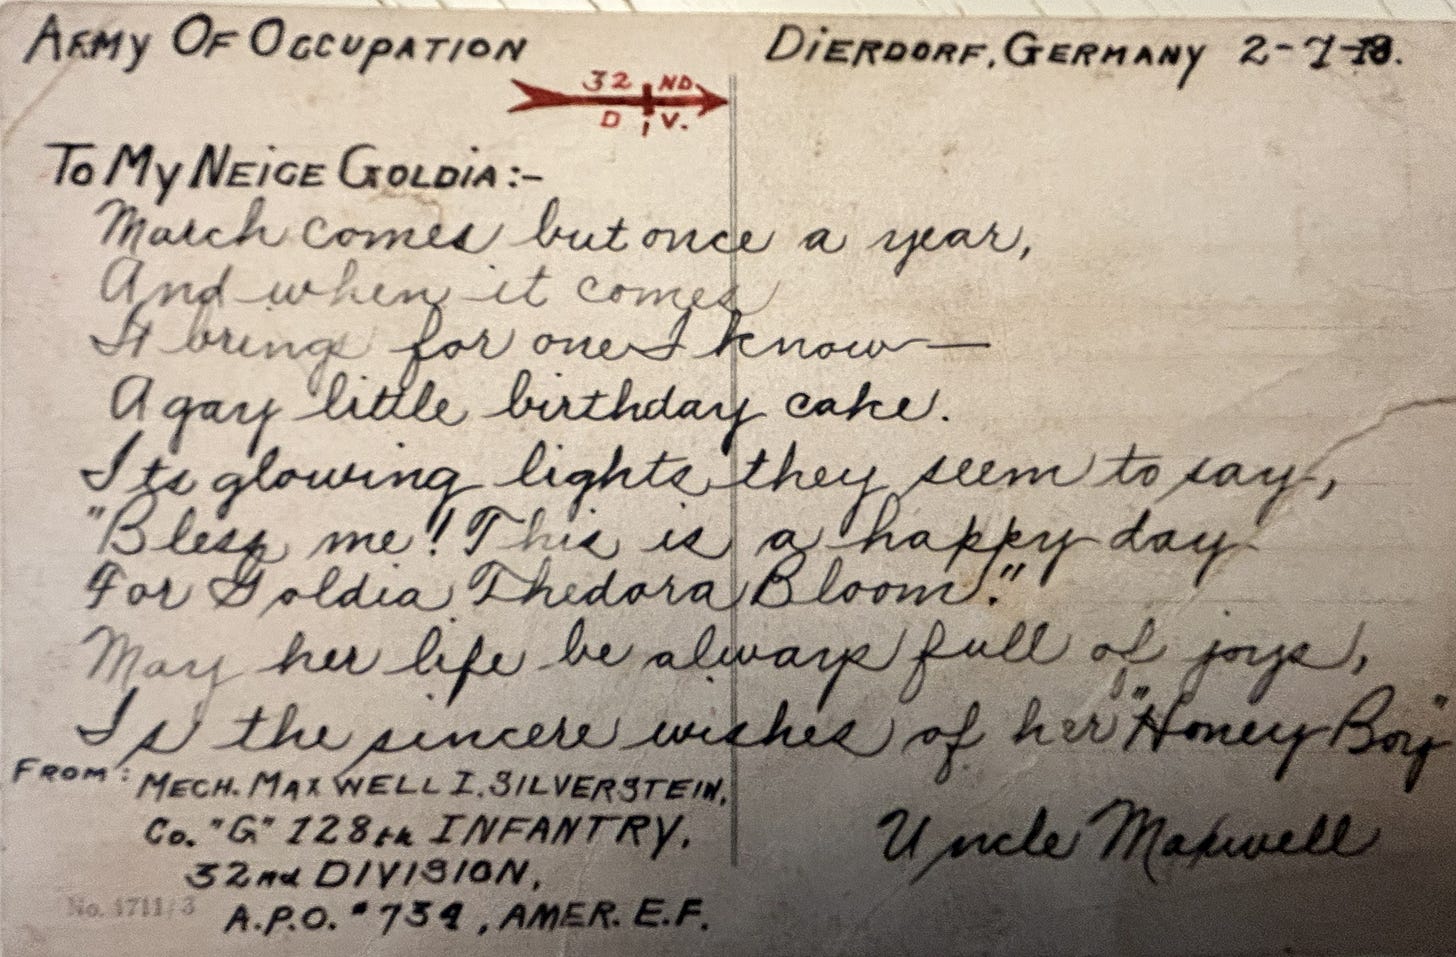 ARMY OF OCCUPATION
DIERDORF, GERMANY 2-7-18.
32 ND
DIV.
TO MY NEICE GOLDIA:-
March comes but once a year,
And when it comes
It brings for one I know—
A gay little birthday cake.
Its glowing lights they seem to say,
"Bless me! This is a happy day
For Goldia Thedora Bloom."
May her life be always full of joys,
Is the sincere wishes of her "Honey Boy"
Uncle Maxwell
FROM: MECH. MAXWELL I. SILVERSTEIN,
Co. "G" 128th INFANTRY,
32nd DIVISION,
A.P.O. #734, AMER. E.F.
No. 4711/3